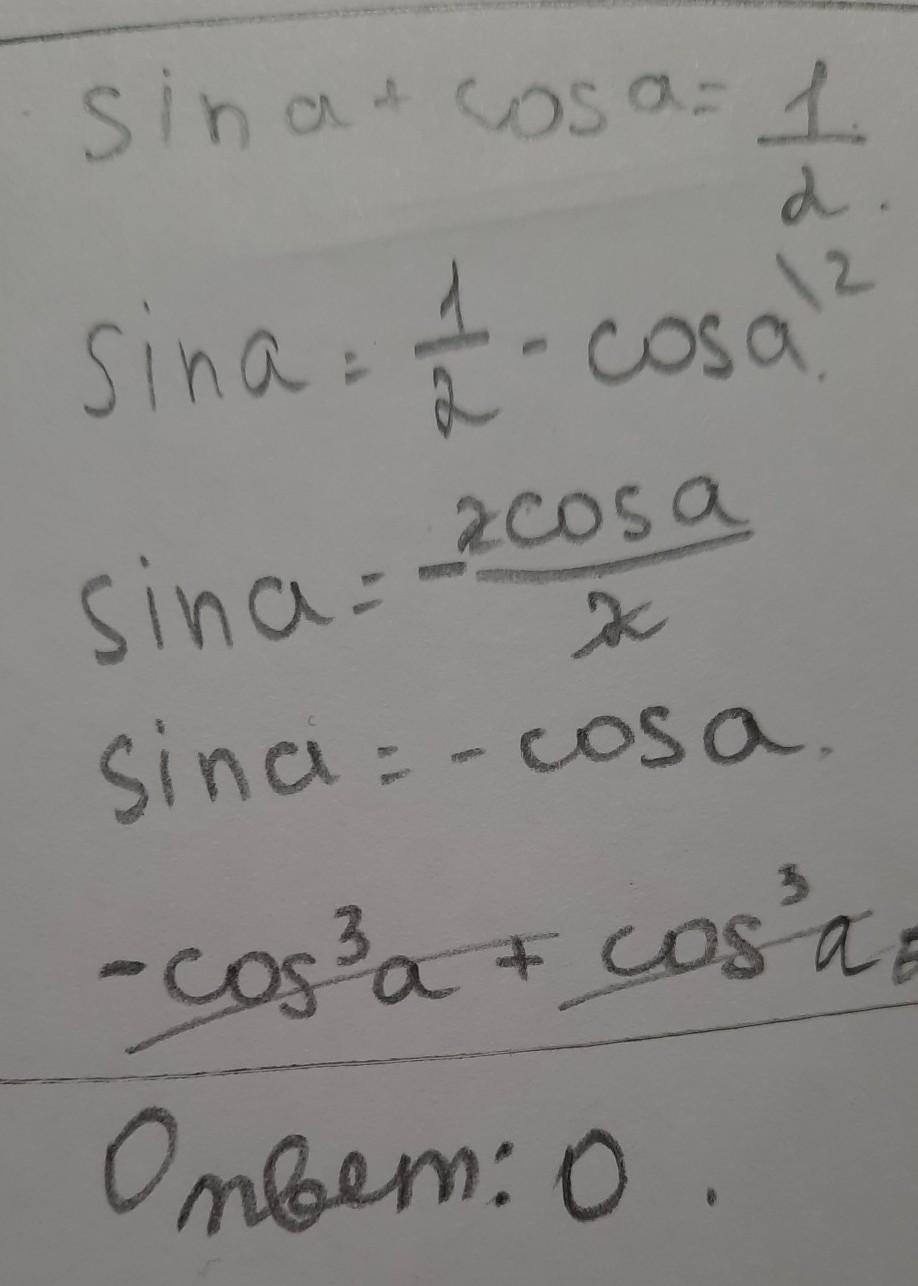 sin a + cos a = 1/2.
sin a = 1/2 - cos a \2.
sin a = - 2cos a / 2
sin a = - cos a.
-cos³a + cos³a =
Ответ: 0.